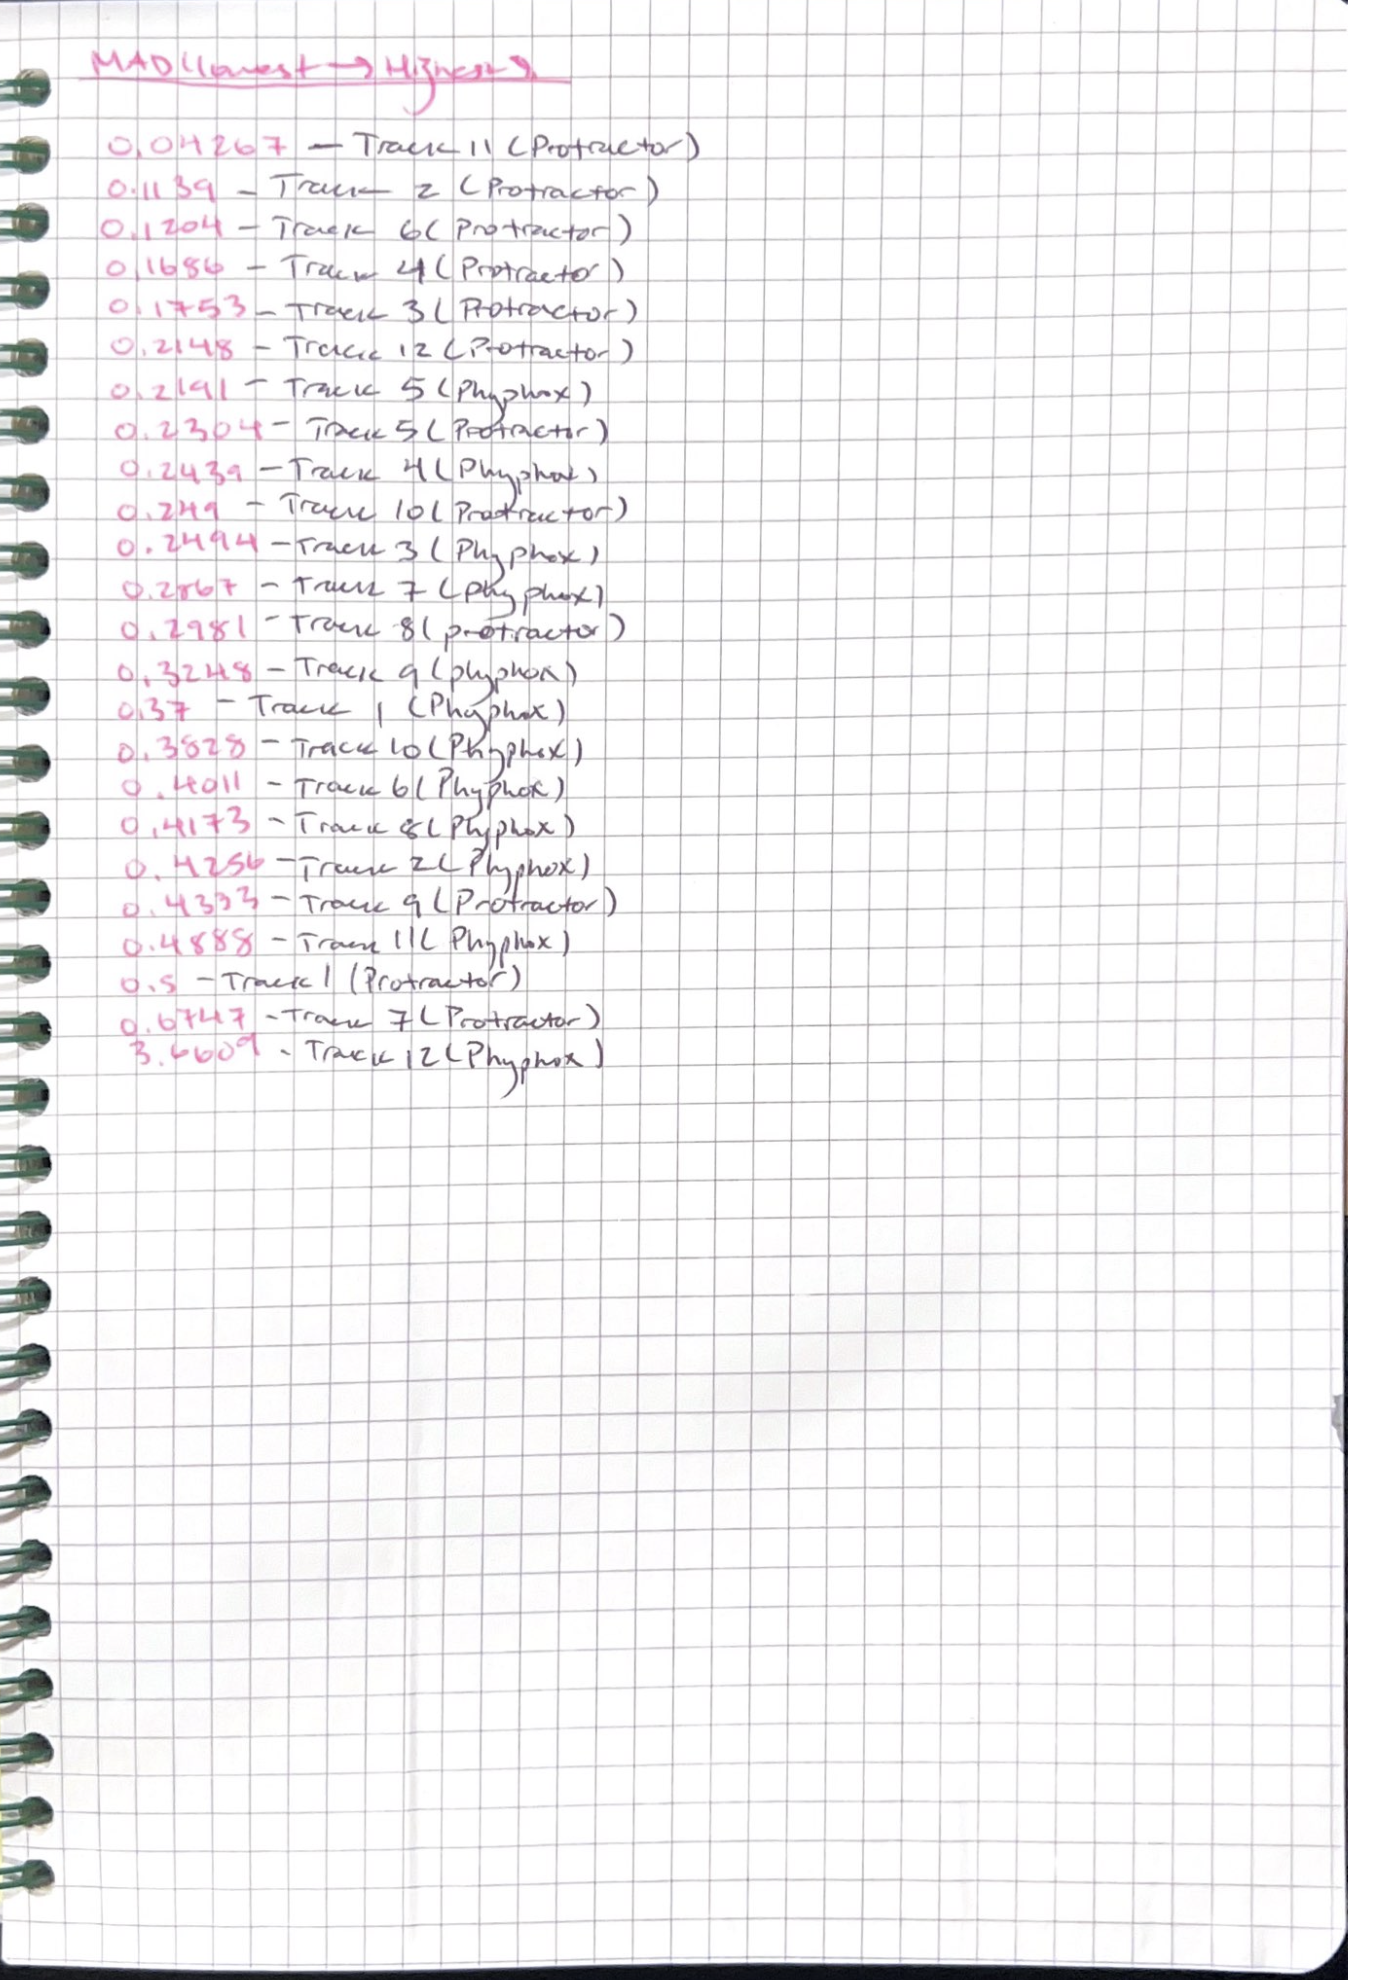 MAD (lowest → Highest)
0.04267 – Track 11 (Protractor)
0.1139 – Track 2 (Protractor)
0.1204 – Track 6 (Protractor)
0.1686 – Track 4 (Protractor)
0.1753 – Track 3 (Protractor)
0.2148 – Track 12 (Protractor)
0.2191 – Track 5 (Phyphox)
0.2304 – Track 5 (Protractor)
0.2439 – Track 4 (Phyphox)
0.249 – Track 10 (Protractor)
0.2494 – Track 3 (Phyphox)
0.2867 – Track 7 (Phyphox)
0.2981 – Track 8 (protractor)
0.3248 – Track 9 (phyphox)
0.37 – Track 1 (Phyphox)
0.3828 – Track 10 (Phyphox)
0.4011 – Track 6 (Phyphox)
0.4173 – Track 8 (Phyphox)
0.4256 – Track 2 (Phyphox)
0.4333 – Track 9 (Protractor)
0.4888 – Track 11 (Phyphox)
0.5 – Track 1 (Protractor)
0.6747 – Track 7 (Protractor)
3.6609 - Track 12 (Phyphox)